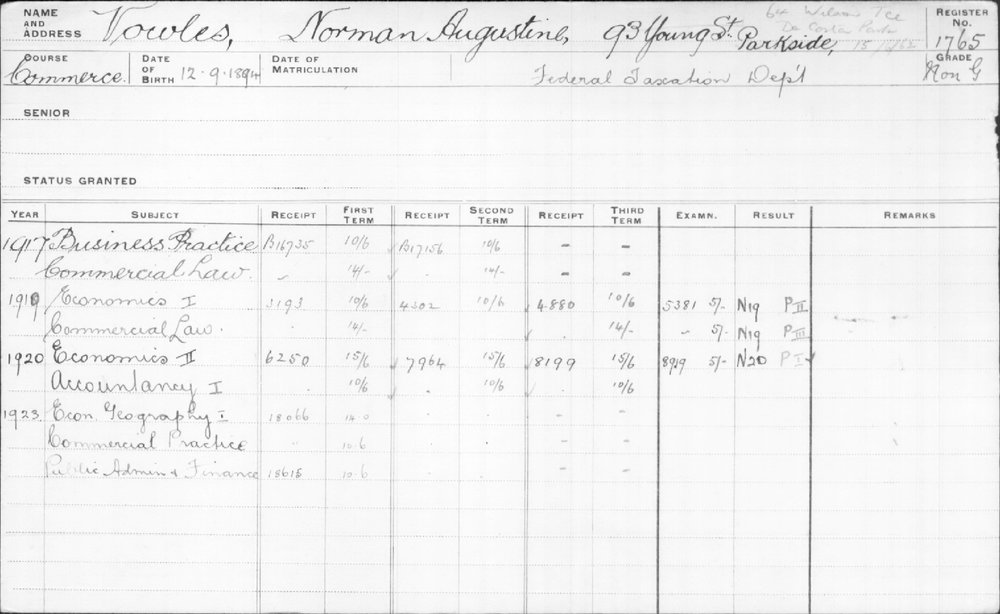 NAME AND ADDRESS Vowles, Norman Augustine, 93 Young St. Parkside, 64 Wilson Tce REGISTER No. 1765
COURSE Commerce. DATE OF BIRTH 12-9-1894 DATE OF MATRICULATION Federal Taxation Dep't GRADE Non G
SENIOR
STATUS GRANTED
YEAR SUBJECT RECEIPT FIRST TERM RECEIPT SECOND TERM RECEIPT THIRD TERM EXAMN. RESULT REMARKS
1917 Business Practice B16735 10/6 B17156 10/6 - -
Commercial Law. 14/- 14/- - -
1919 Economics I 3193 10/6 4302 10/6 4880 10/6 5381 5/- N19 P II
Commercial Law. 14/- 14/- 5/- N19 P III
1920 Economics II 6250 15/6 7964 15/6 8199 15/6 8919 5/- N20 P I
Accountancy I 10/6 10/6 10/6
1923 Econ. Geography I 18066 14-0 - -
Commercial Practice 10-6 - -
Public Admin & Finance 18615 10-6 - -